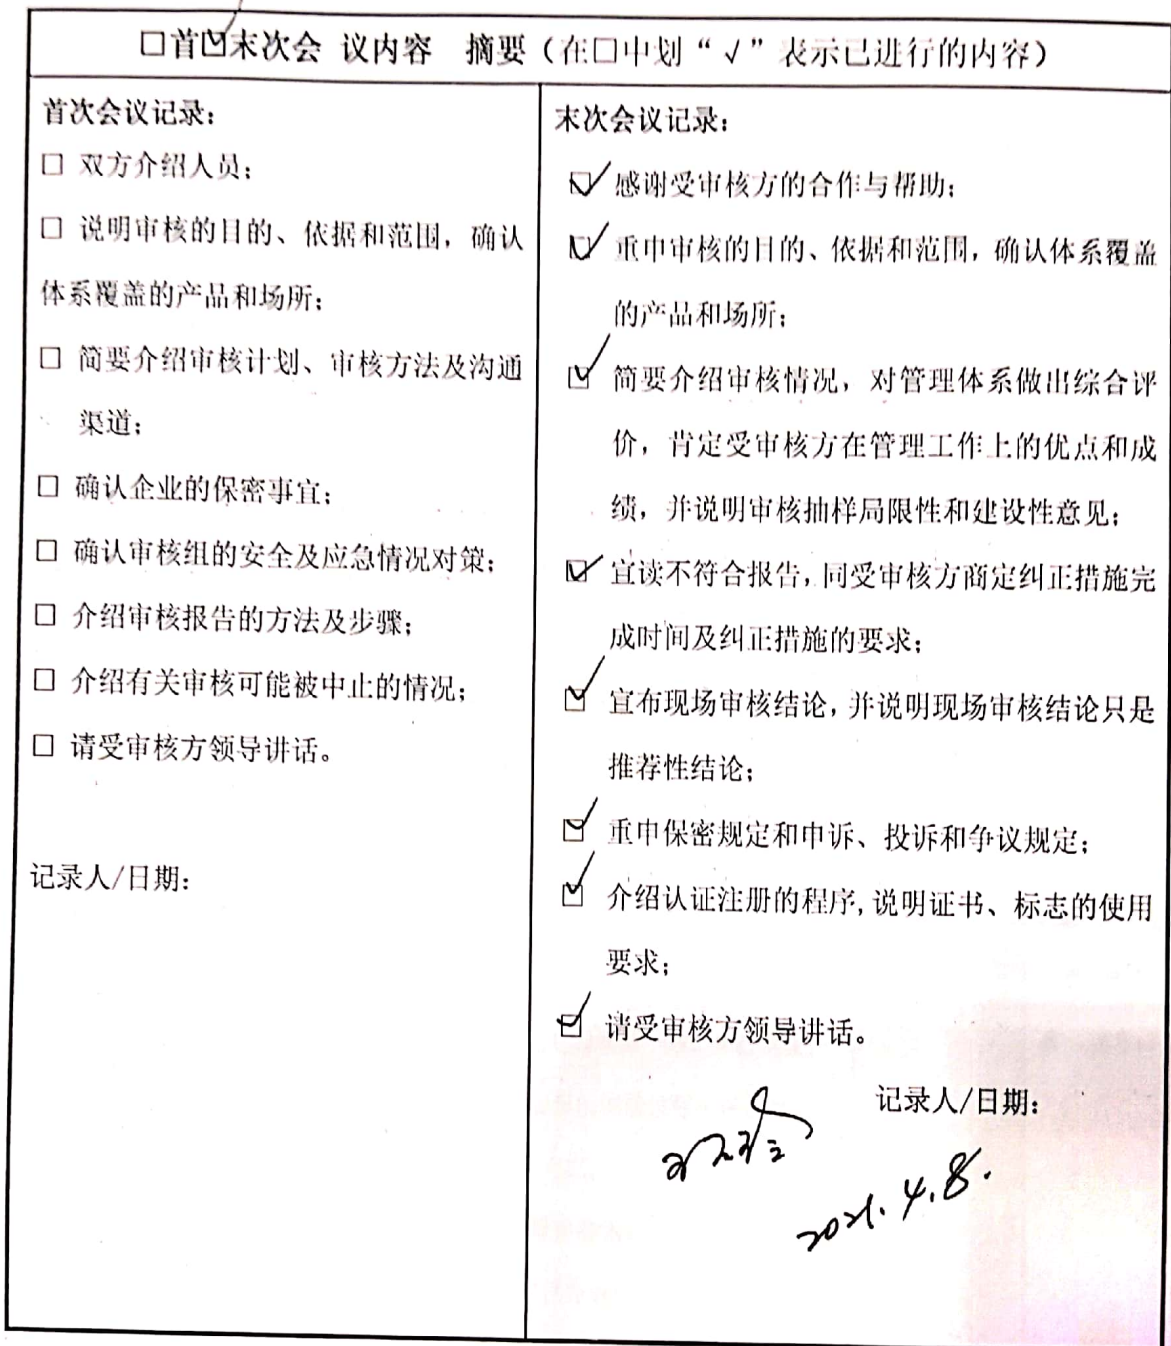 □首☑末次会 议内容 摘要（在□中划“√”表示已进行的内容）
首次会议记录：
□ 双方介绍人员；
□ 说明审核的目的、依据和范围，确认
体系覆盖的产品和场所；
□ 简要介绍审核计划、审核方法及沟通
渠道；
□ 确认企业的保密事宜；
□ 确认审核组的安全及应急情况对策；
□ 介绍审核报告的方法及步骤；
□ 介绍有关审核可能被中止的情况；
□ 请受审核方领导讲话。
记录人/日期：
末次会议记录：
☑ 感谢受审核方的合作与帮助；
☑ 重申审核的目的、依据和范围，确认体系覆盖
的产品和场所；
☑ 简要介绍审核情况，对管理体系做出综合评
价，肯定受审核方在管理工作上的优点和成
绩，并说明审核抽样局限性和建设性意见；
☑ 宣读不符合报告，同受审核方商定纠正措施完
成时间及纠正措施的要求；
☑ 宣布现场审核结论，并说明现场审核结论只是
推荐性结论；
☑ 重申保密规定和申诉、投诉和争议规定；
☑ 介绍认证注册的程序，说明证书、标志的使用
要求；
☑ 请受审核方领导讲话。
记录人/日期：
2021.4.8.